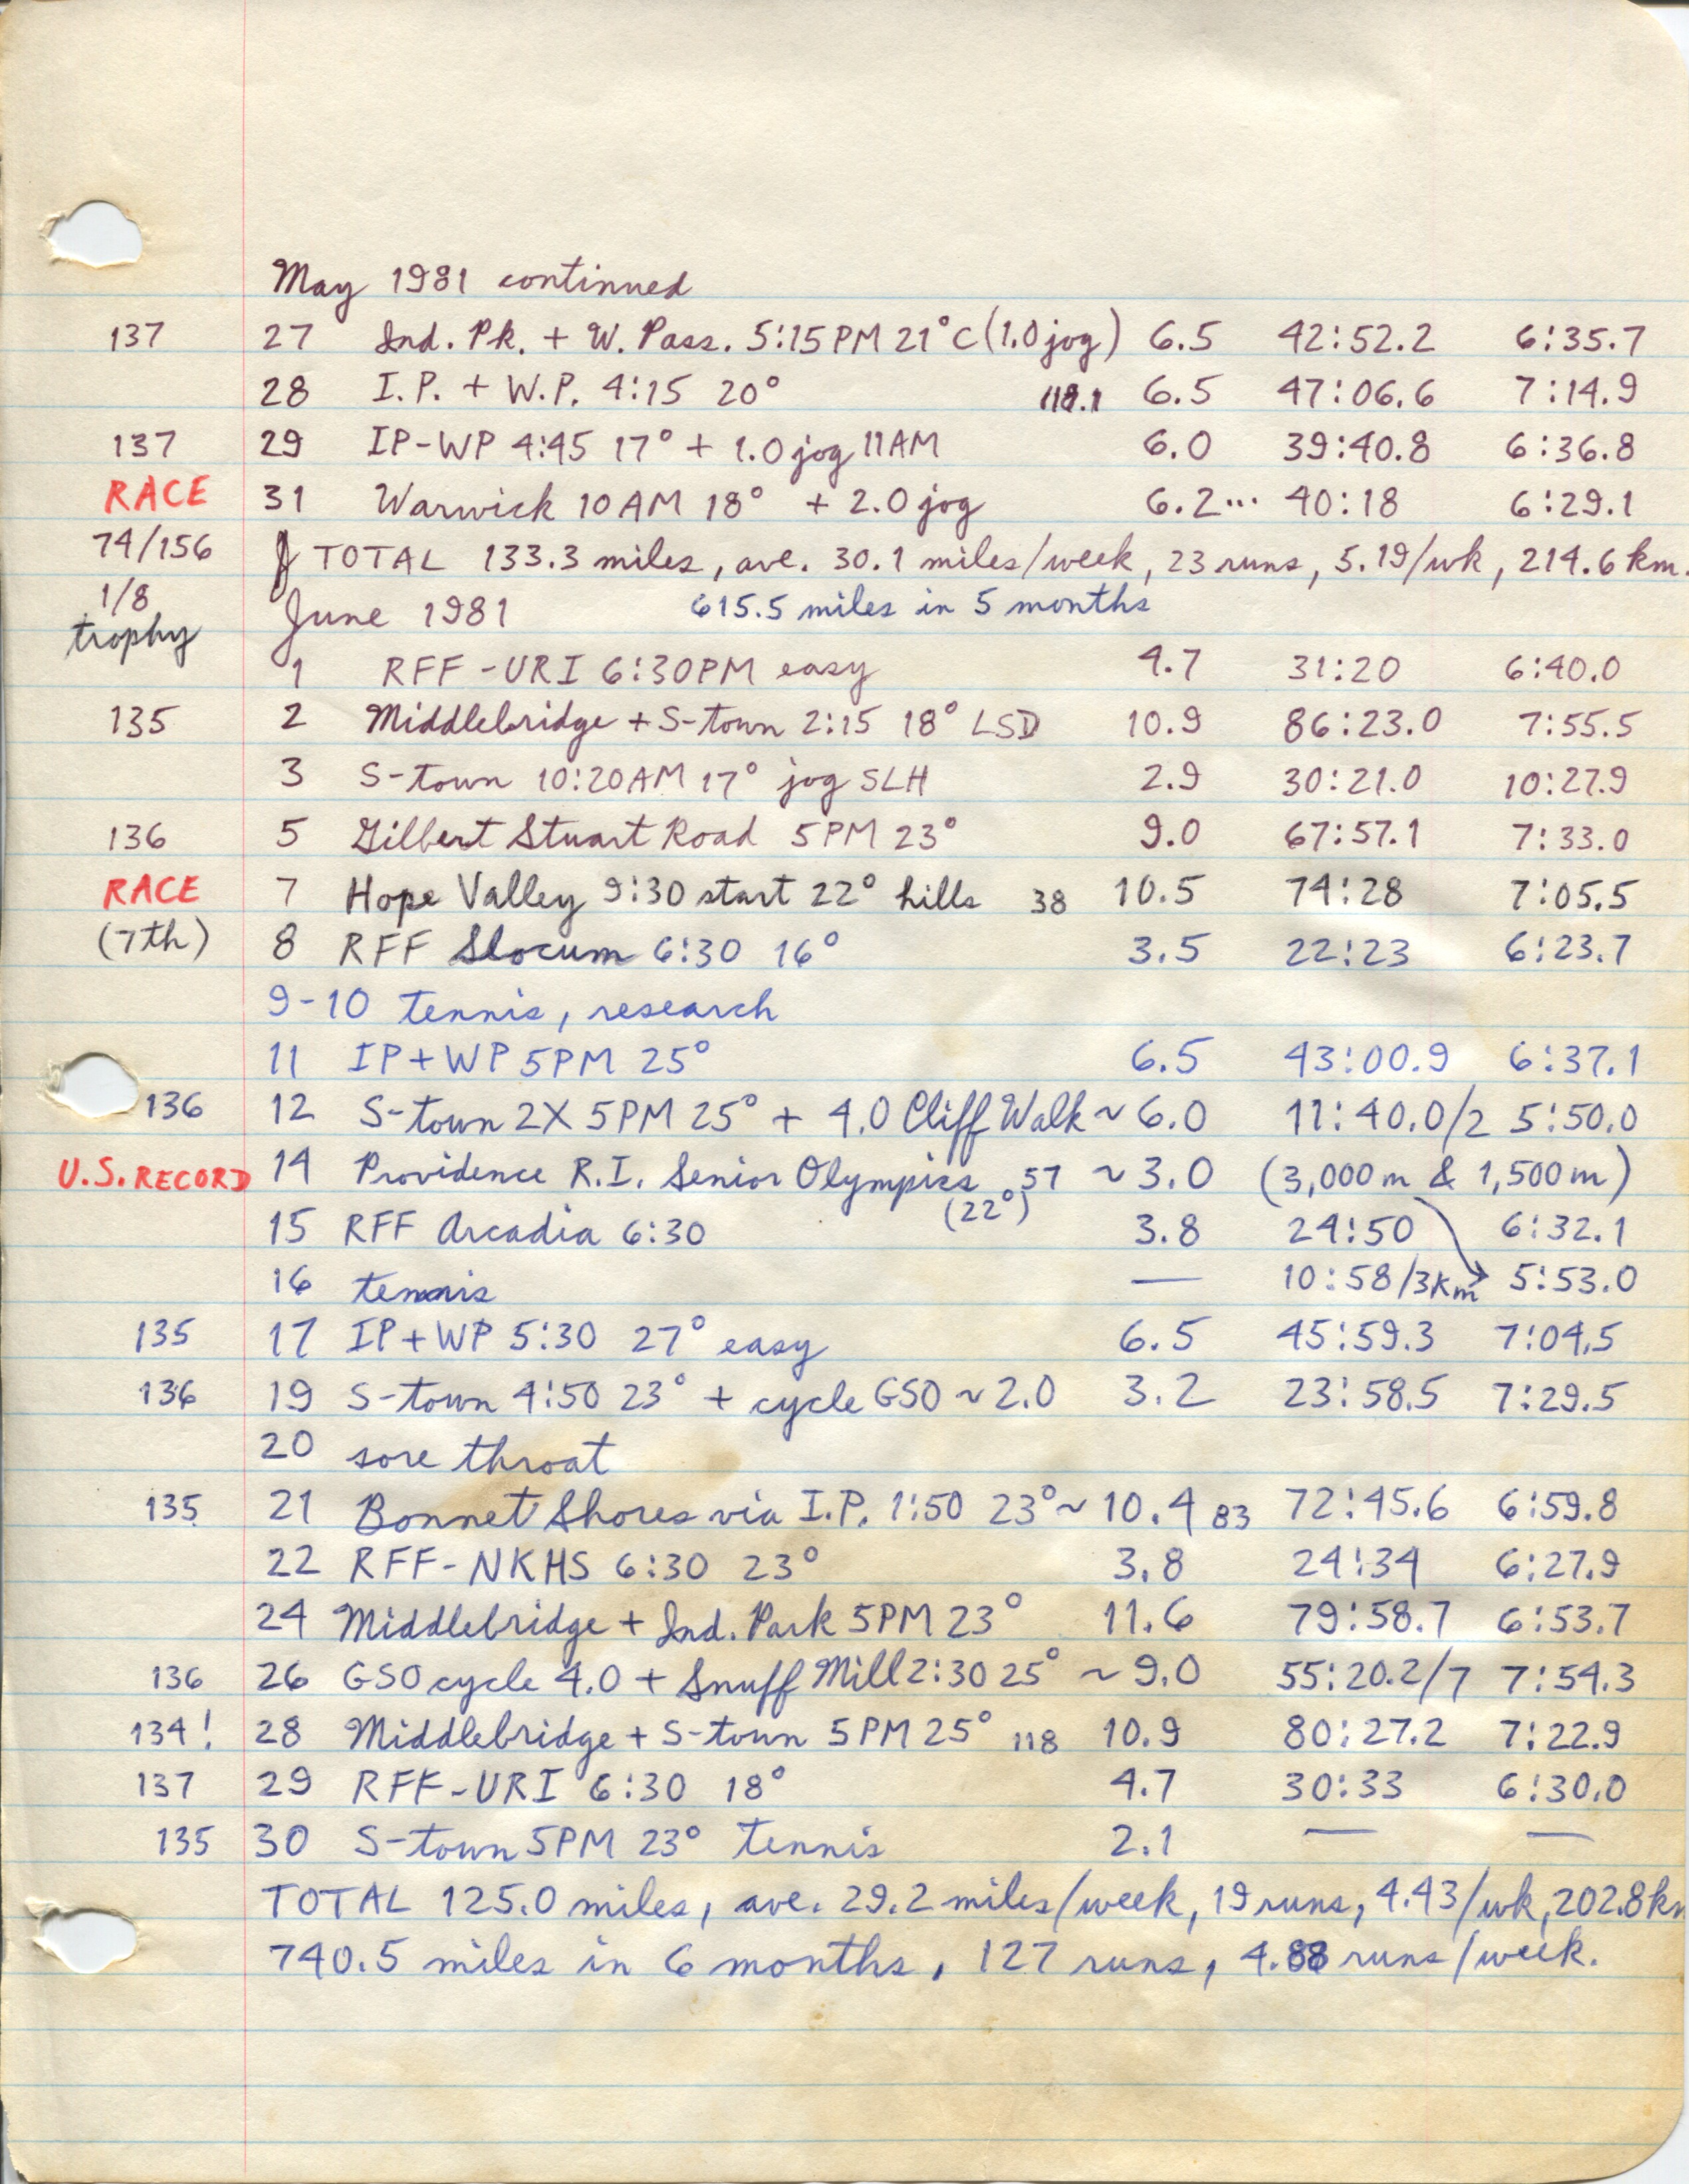 May 1981 continued
137 27 Ind. Pk. + W. Pass. 5:15 PM 21°C (1.0 jog) 6.5 42:52.2 6:35.7
28 I.P. + W.P. 4:15 20° 118.1 6.5 47:06.6 7:14.9
137 29 IP-WP 4:45 17° + 1.0 jog 11AM 6.0 39:40.8 6:36.8
RACE 31 Warwick 10AM 18° + 2.0 jog 6.2... 40:18 6:29.1
74/156 TOTAL 133.3 miles, ave. 30.1 miles/week, 23 runs, 5.19/wk, 214.6 km.
1/8 June 1981 615.5 miles in 5 months
trophy
1 RFF-URI 6:30PM easy 4.7 31:20 6:40.0
135 2 Middlebridge + S-town 2:15 18° LSD 10.9 86:23.0 7:55.5
3 S-town 10:20AM 17° jog SLH 2.9 30:21.0 10:27.9
136 5 Gilbert Stuart Road 5PM 23° 9.0 67:57.1 7:33.0
RACE 7 Hope Valley 9:30 start 22° hills 38 10.5 74:28 7:05.5
(7th) 8 RFF Slocum 6:30 16° 3.5 22:23 6:23.7
9-10 tennis, research
11 IP+WP 5PM 25° 6.5 43:00.9 6:37.1
136 12 S-town 2X 5PM 25° + 4.0 Cliff Walk ~ 6.0 11:40.0/2 5:50.0
U.S. RECORD 14 Providence R.I. Senior Olympics 57 ~ 3.0 (3,000m & 1,500m)
(22°)
15 RFF Arcadia 6:30 3.8 24:50 6:32.1
16 tennis — 10:58/3km → 5:53.0
135 17 IP+WP 5:30 27° easy 6.5 45:59.3 7:04.5
136 19 S-town 4:50 23° + cycle GSO ~ 2.0 3.2 23:58.5 7:29.5
20 sore throat
135 21 Bonnet Shores via I.P. 1:50 23° ~ 10.4 83 72:45.6 6:59.8
22 RFF-NKHS 6:30 23° 3.8 24:34 6:27.9
24 Middlebridge + Ind. Park 5PM 23° 11.6 79:58.7 6:53.7
136 26 GSO cycle 4.0 + Snuff Mill 2:30 25° ~ 9.0 55:20.2/7 7:54.3
134! 28 Middlebridge + S-town 5PM 25° 118 10.9 80:27.2 7:22.9
137 29 RFF-URI 6:30 18° 4.7 30:33 6:30.0
135 30 S-town 5PM 23° tennis 2.1 — —
TOTAL 125.0 miles, ave. 29.2 miles/week, 19 runs, 4.43/wk, 202.8 km
740.5 miles in 6 months, 127 runs, 4.88 runs/week.